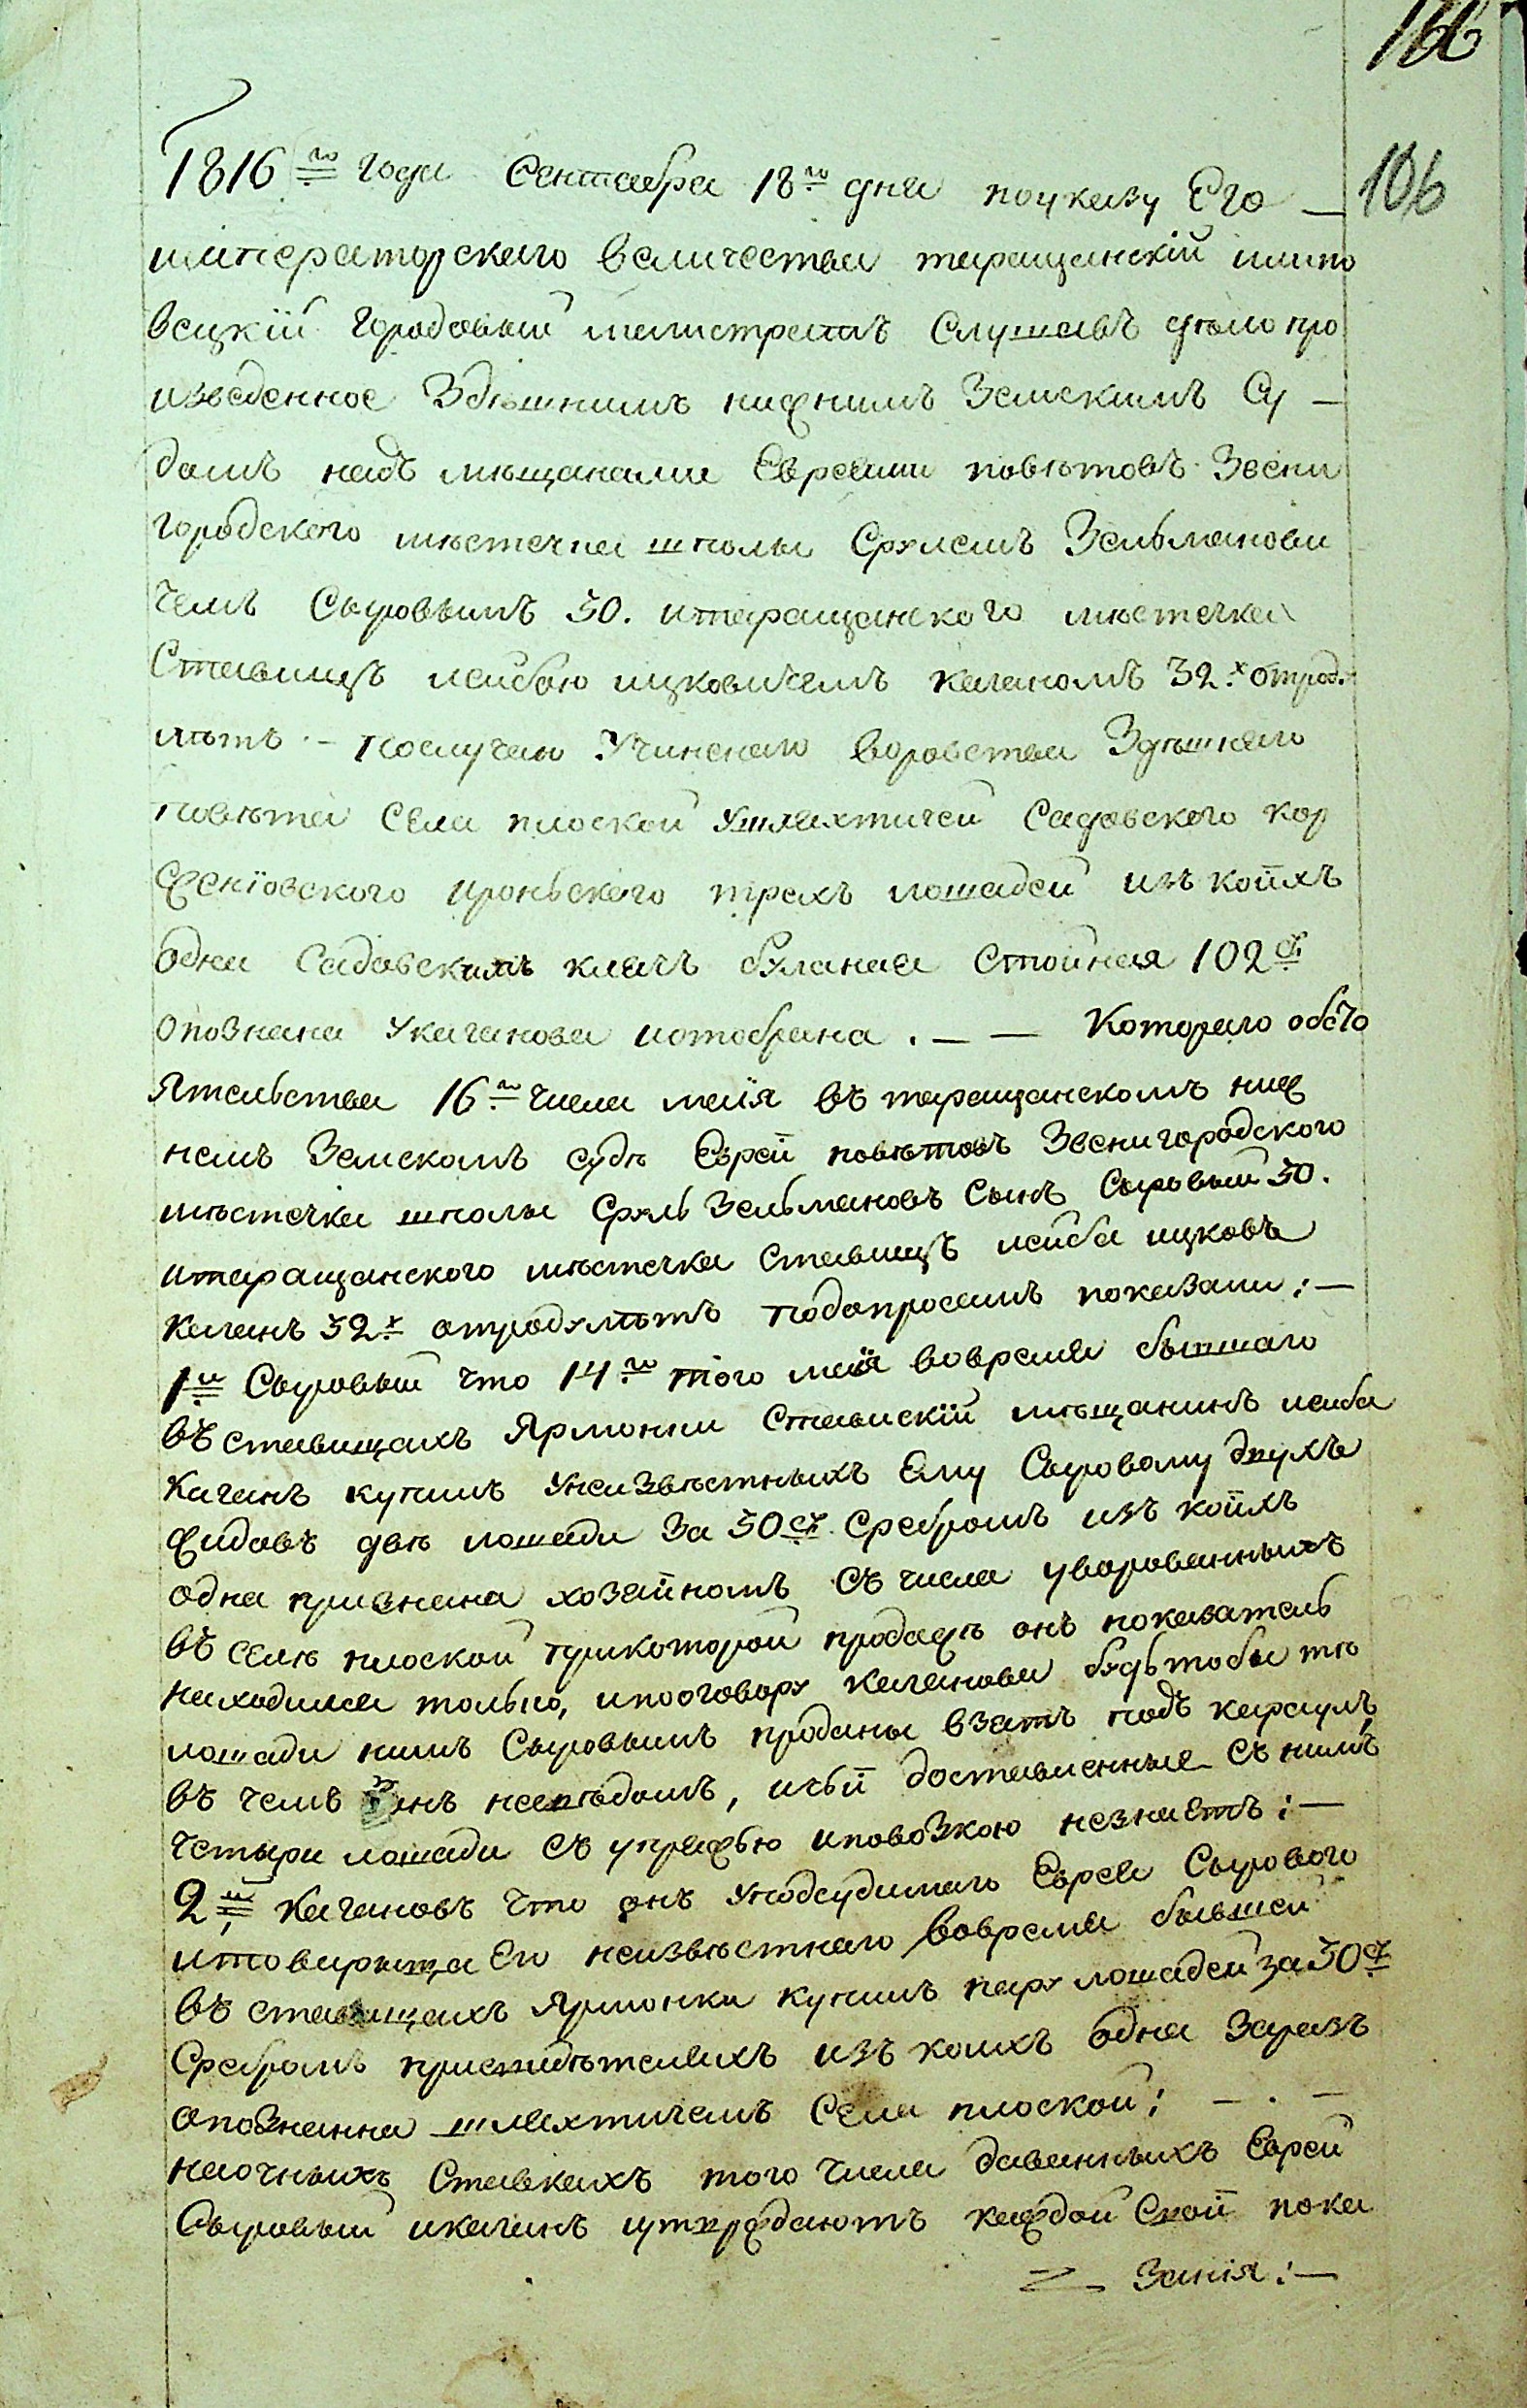 166
1816го года Сентабра 18го дня поуказу Его —
императорскаго величества таращанскій липо
вецкій городовый магистратъ Слушавъ дѣло про
изведенное Здѣшнимъ нижнимъ Земскимъ Су —
домъ надъ мѣщанами Евреями повѣтовъ Звени
городского мѣстечка шполы Срулемъ Зельманови
чемъ Сыровымъ 30. итаращанского мѣстечка
Ставищъ лейбою ицковичемъ каганомъ 32х отрод.
лѣтъ — послучаю Учиненаго воровства Здѣшнего
повѣта Села плоской Ушляхтичей Садовского кор
женіовского ироньского трехъ лошадей изъ коііхъ
одна Садовскимъ клячъ буланая Стойная 102
опознана Укаганова иотобрана . — — Которого обсто
ятельства 16го числа маія въ таращанскомъ ниж
немъ Земскомъ судѣ Еврей повѣтовъ Звенигородского
мѣстечка шполы Сруль Зельмановъ Сынъ Сыровый 30.
итаращанского мѣстечка Ставищъ лейба ицковъ
Каганъ 32х отродулѣтъ подопросамъ показали: —
1й Сыровый что 14го того маія вовремя бывшаго
въ ставищахъ Ярмонки Ставискій мѣщанинъ лейба
Каганъ купилъ Унеизвѣстныхъ Ему Сыровому двухъ
жидовъ двѣ лошади За 30 Сребромъ изъ коііхъ
одна признана хозяйномъ Съ числа уворованныхъ
въ селѣ плоской прикоторой продажѣ онъ показатель
находился только, ипооговору каганова будьтобы тѣ
лошади нимъ Сыровымъ проданы взятъ подъ караулъ
въ чемъ онъ невѣдомъ, ичьи доставленные Съ нимъ
четыри лошади Съ упряжью иповозкою незнаетъ: —
2й Кагановъ что онъ Уподсудимаго Еврея Сырового
итоварища Его неизвѣстнаго вовремя бывшей
въ ставищахъ Ярмонки купилъ пару лошадей за 30
Сребромъ присвидѣтеляхъ изъ коихъ одна Заразъ
опознанна шляхтичемъ Села плоской: — . —
наочныхъ Ставкахъ того числа даванныхъ Еврей
Сыровый икаганъ утверждаютъ каждой Свой пока
— Занія: —
106